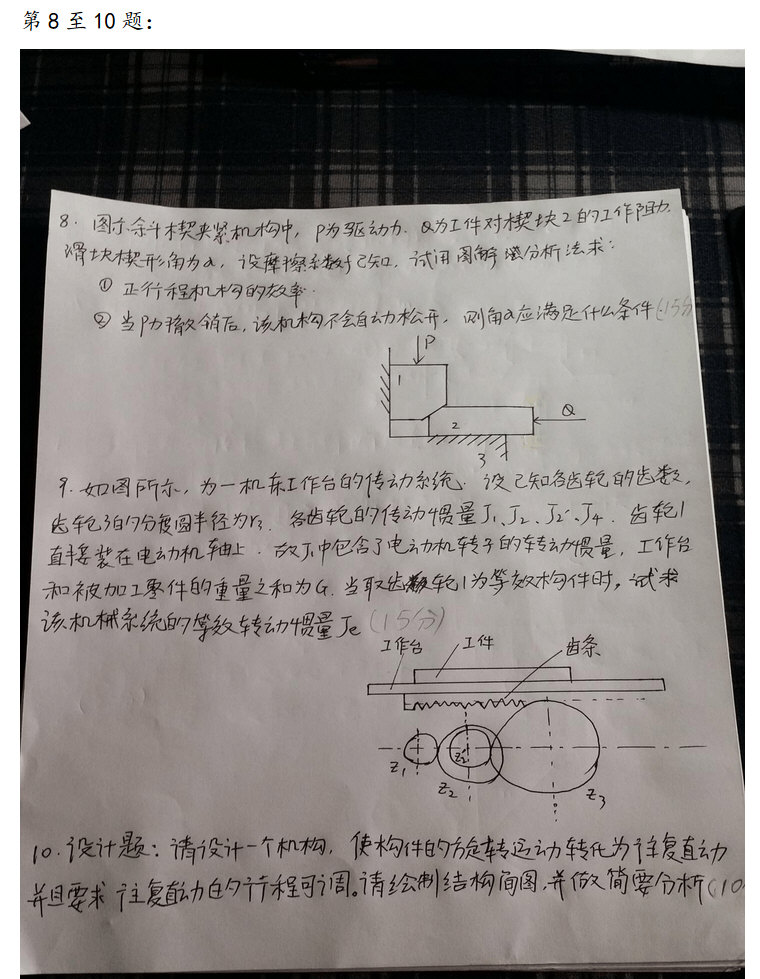 第 8 至 10 题：
8. 图示斜楔夹紧机构中，P为驱动力. Q为工件对楔块2的工作阻力.
滑块楔形角为α，设摩擦系数f已知，试用图解 分析法求：
① 正行程机构的效率.
② 当P力撤销后，该机构不会自动松开，则角α应满足什么条件(15分
P
1
2
Q
3
9. 如图所示，为一机床工作台的传动系统. 设已知各齿轮的齿数，
齿轮3的分度圆半径为r3. 各齿轮的传动惯量J1、J2、J2'、J4. 齿轮1
直接装在电动机轴上. 故J1中包含了电动机转子的转动惯量，工作台
和被加工零件的重量之和为G. 当取齿轮1为等效构件时，试求
该机械系统的等效转动惯量Je (15分)
工作台 工件 齿条
Z1 Z2 Z2' Z3
10. 设计题：请设计一个机构，使构件的旋转运动转化为往复直动
并且要求往复直动的行程可调。请绘制结构简图，并做简要分析(10